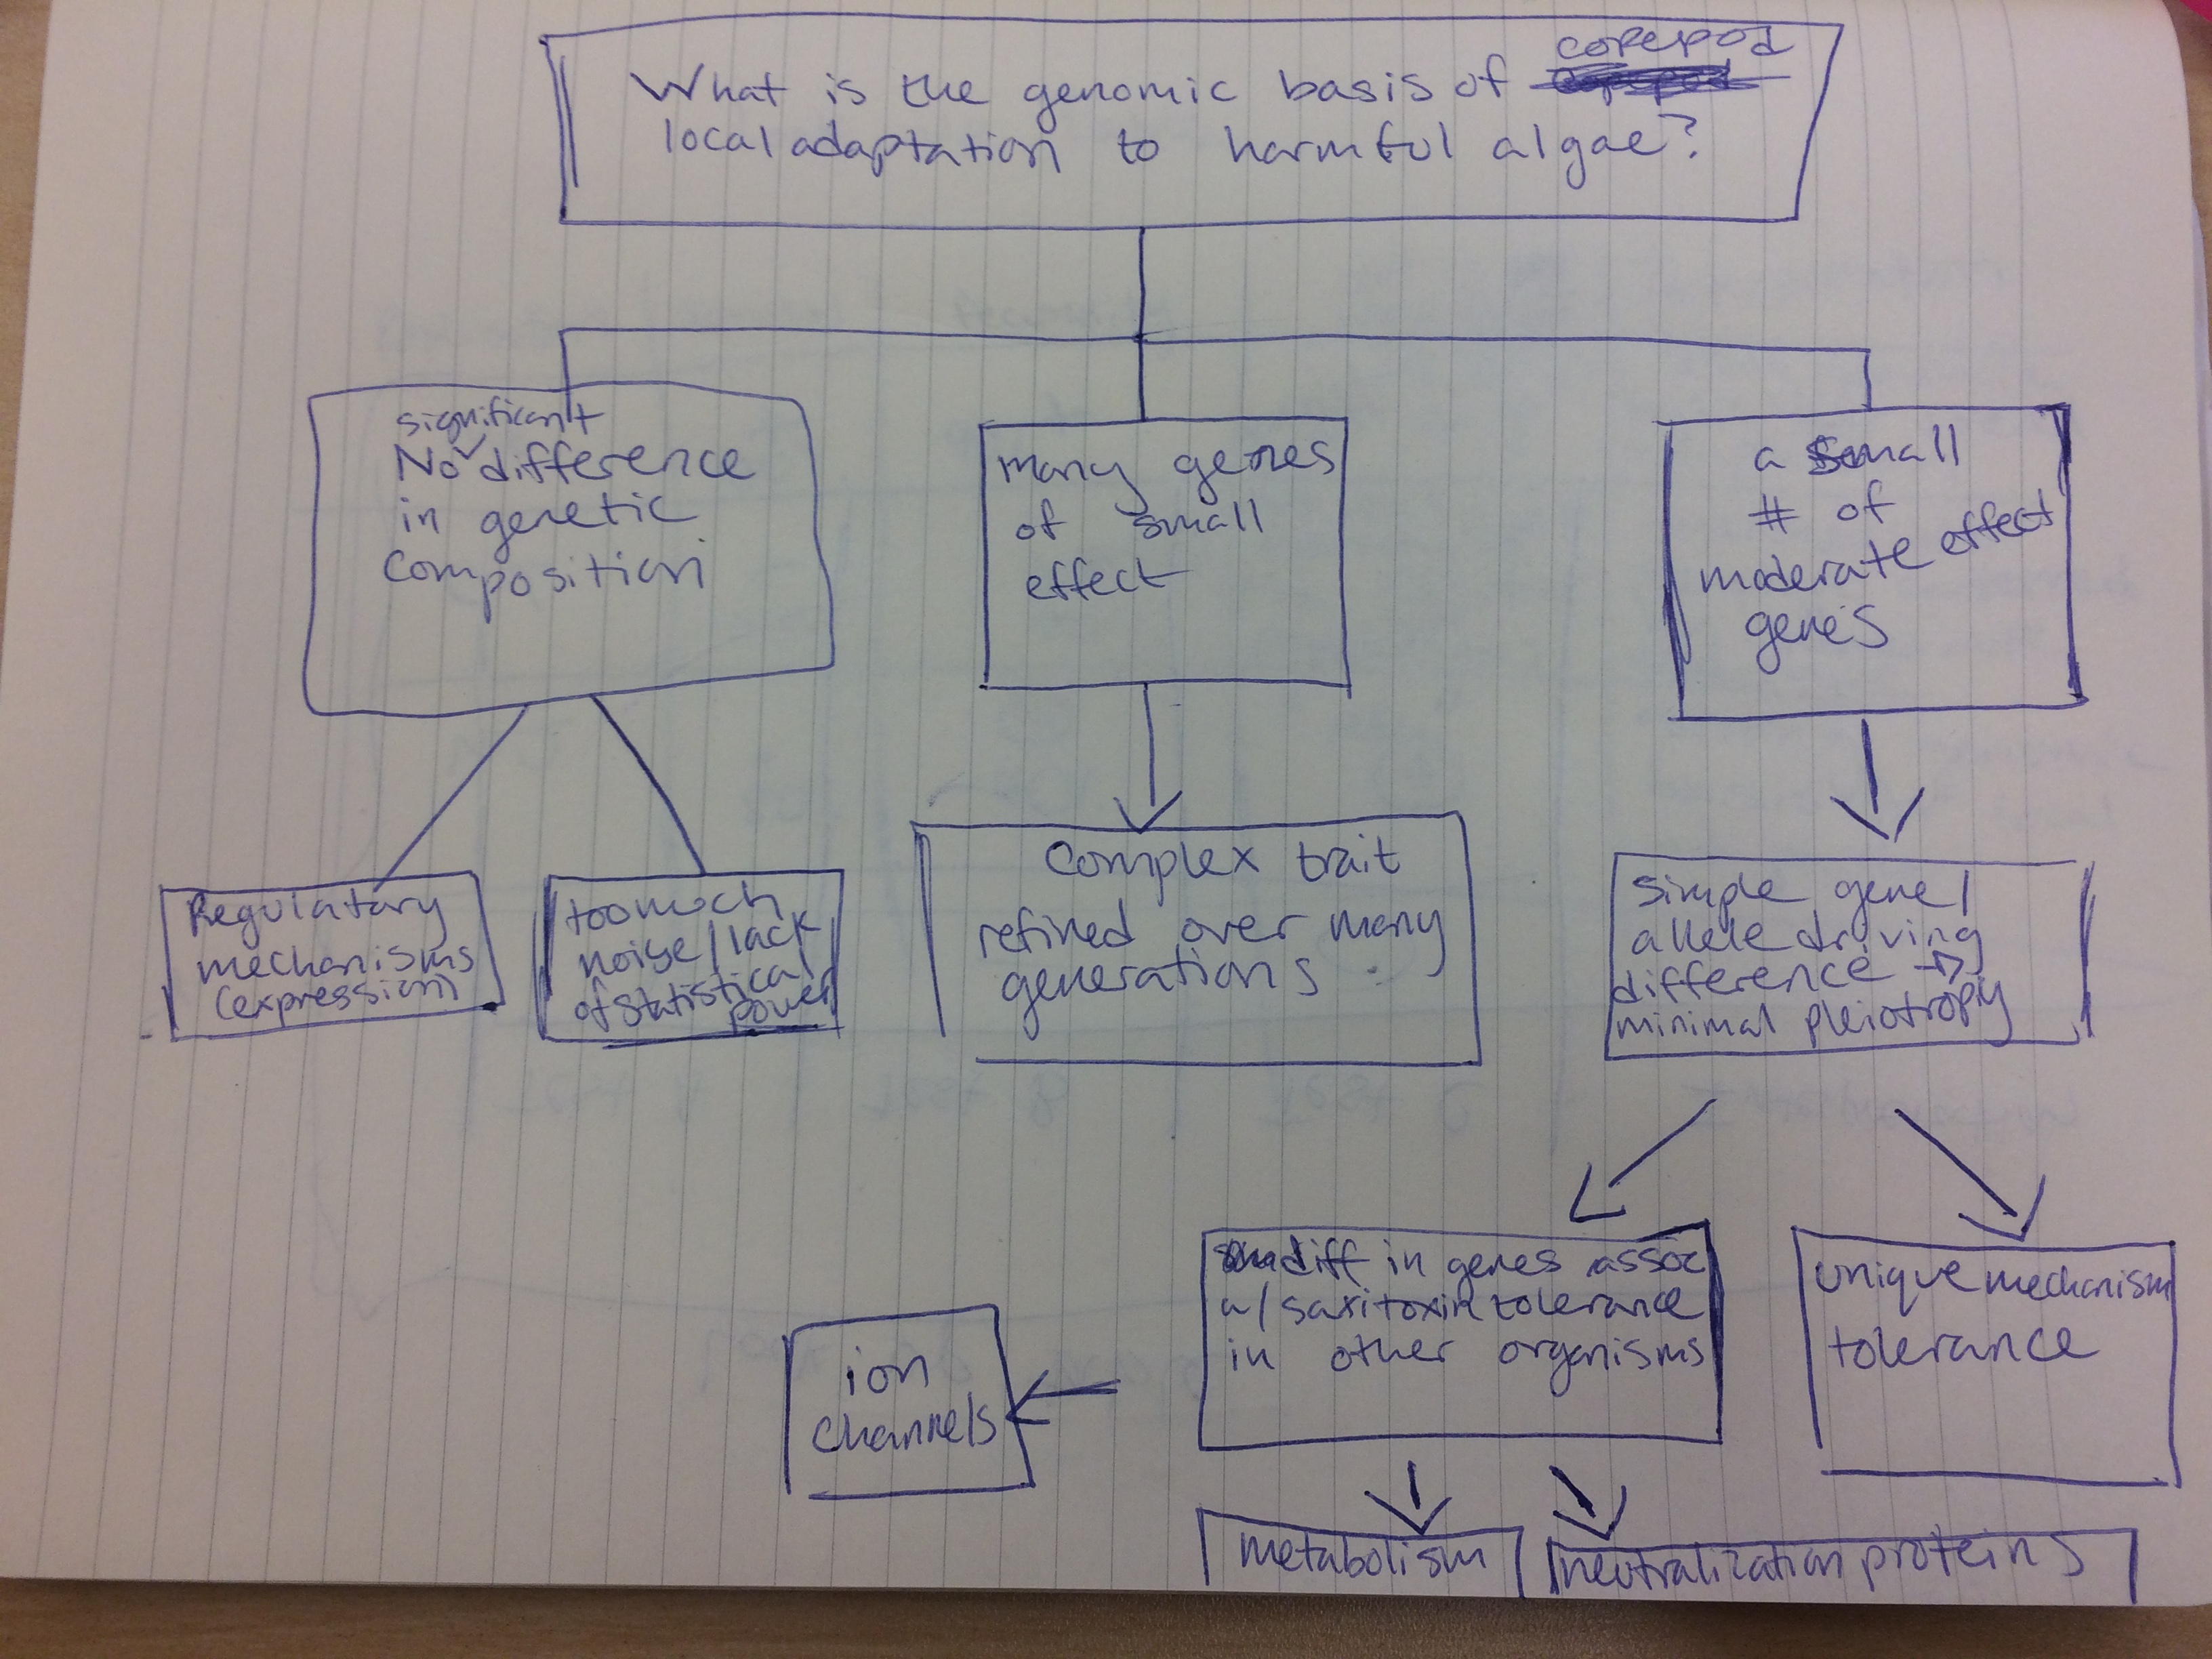 copepod
What is the genomic basis of
local adaptation to harmful algae?
significant
No difference
in genetic
composition
many genes
of small
effect
a small
# of
moderate effect
genes
Regulatory
mechanisms
(expression)
too much
noise/lack
of statistical
power
Complex trait
refined over many
generations
simple gene/
allele driving
difference →
minimal pleiotropy
diff in genes assoc
w/ saxitoxin tolerance
in other organisms
unique mechanism
tolerance
ion
channels
metabolism
neutralization proteins